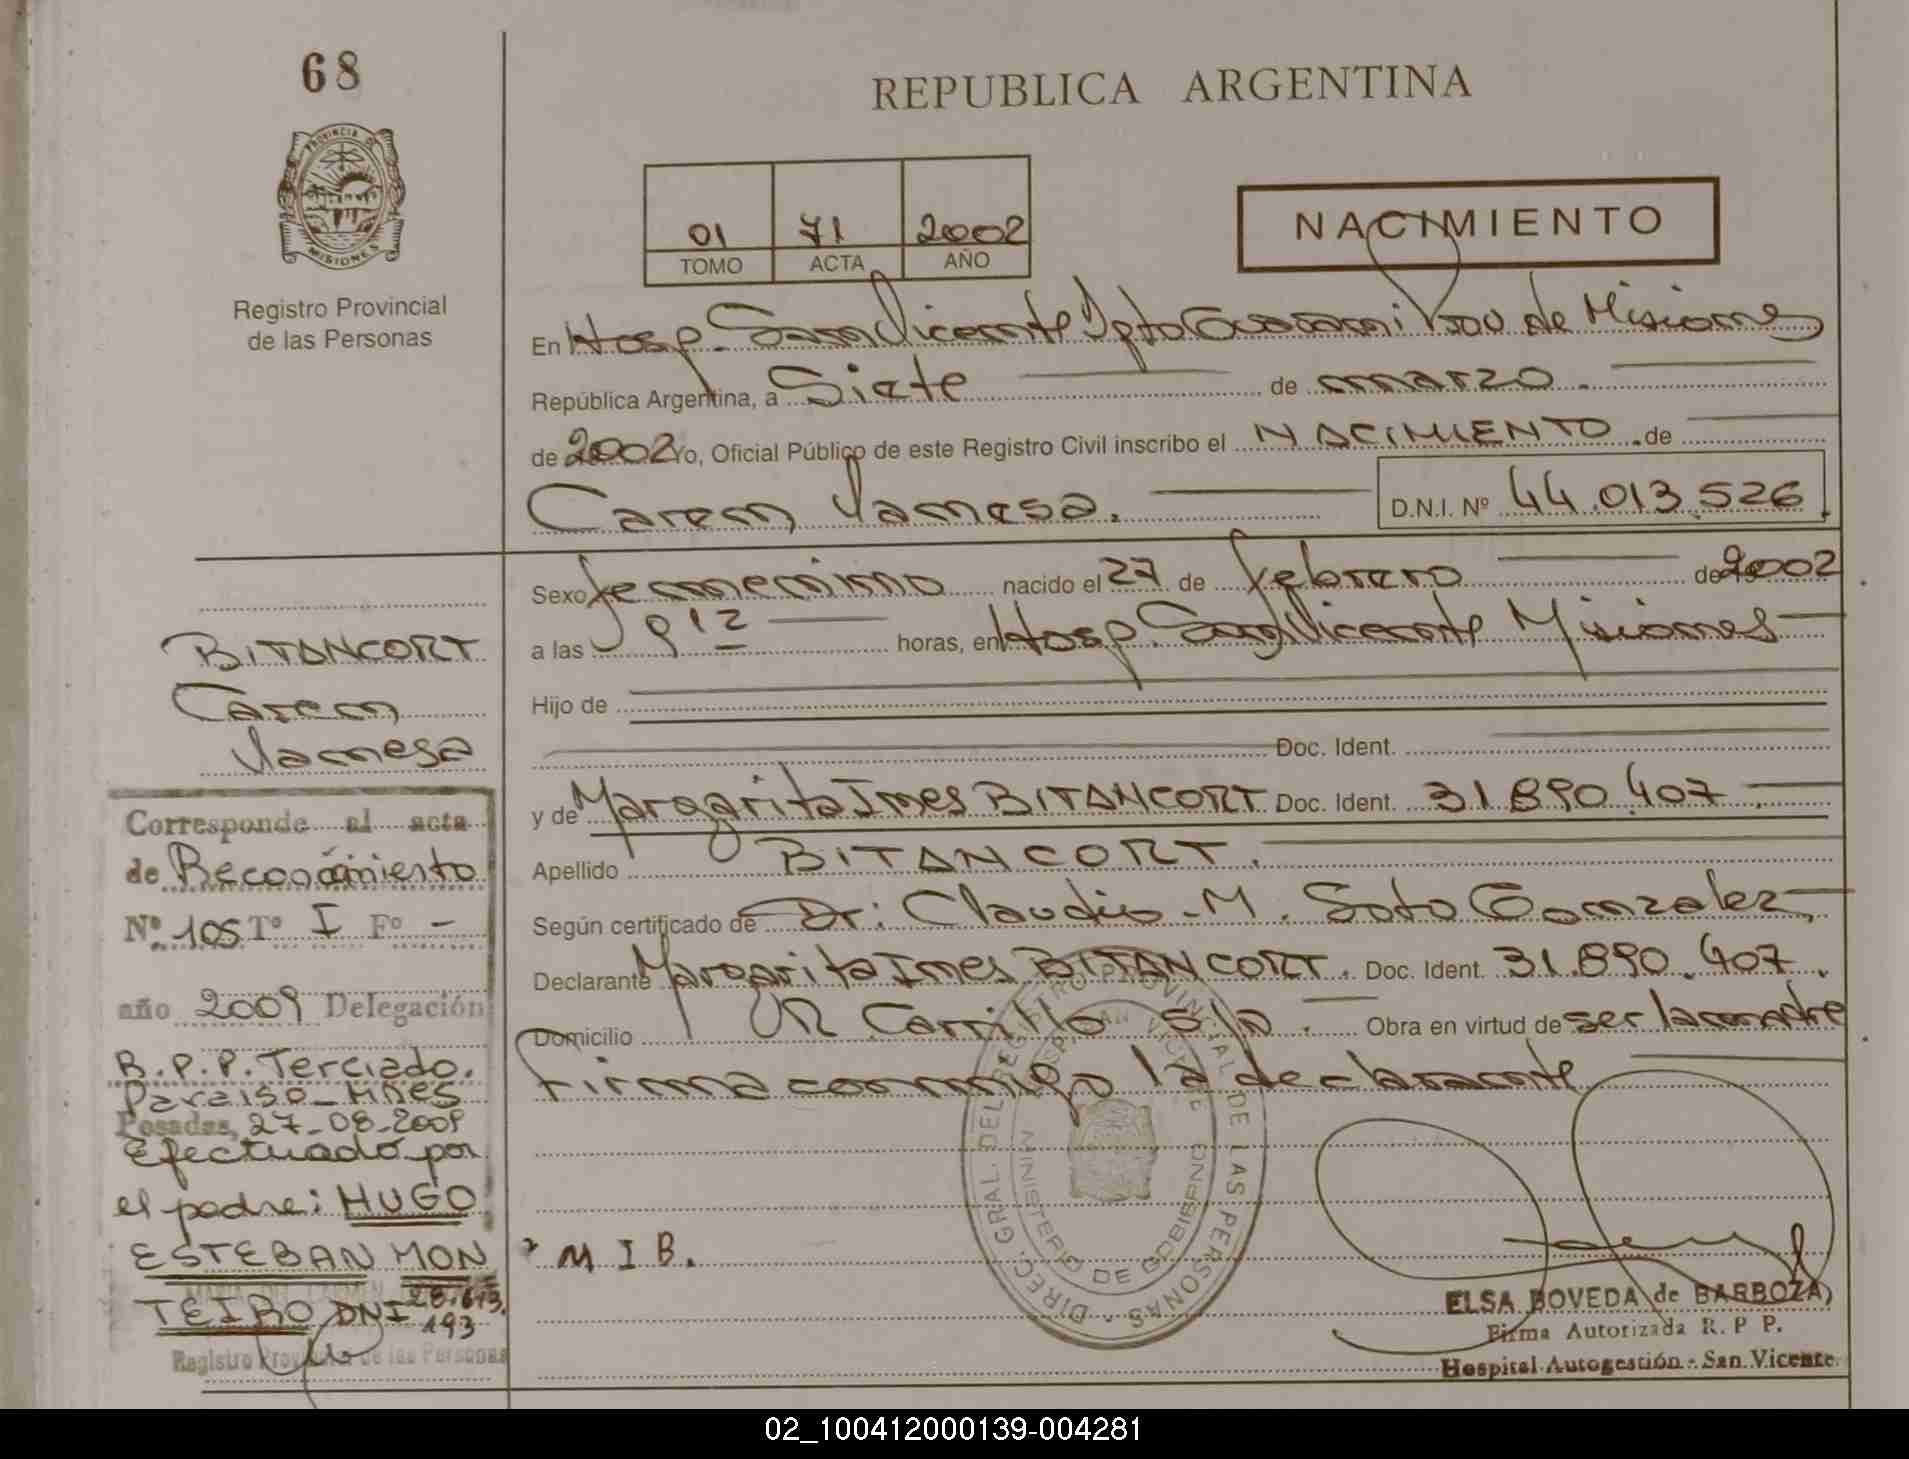 68
PROVINCIA DE
MISIONES
Registro Provincial
de las Personas
REPUBLICA ARGENTINA
01 71 2002
TOMO ACTA AÑO
NACIMIENTO
En Hosp. San Vicente Dpto Guarani Prov de Misiones
República Argentina, a Siete de marzo.
de 2002 Yo, Oficial Público de este Registro Civil inscribo el NACIMIENTO de
Carem Vanesa. D.N.I. Nº 44.013.526
Sexo femenino nacido el 27 de febrero de 2002
a las 9 12 horas, en Hosp. San Vicente Misiones
Hijo de
Doc. Ident.
y de Margarita Ines BITANCORT Doc. Ident. 31.890.407
Apellido BITANCORT.
Según certificado de Dr: Claudio M. Soto Gonzalez
Declarante Margarita Ines BITANCORT. Doc. Ident. 31.890.407.
Domicilio R Carrillo s/n. Obra en virtud de ser la madre
Firma conmigo la declarante
M I B.
DIREC. GRAL. DEL REGISTRO PROVINCIAL DE LAS PERSONAS
HOSP. SAN VICENTE
MINISTERIO DE GOBIERNO
ELSA BOVEDA de BARBOZA
Firma Autorizada R. P P.
Hospital Autogestión - San Vicente
BITANCORT
Carem
Vanesa
Corresponde al acta
de Reconocimiento
Nº 105 Tº I Fº -
año 2009 Delegación
R.P.P. Terciado.
Paraiso - Mnes
Posadas, 27-08-2009
Efectuado por
el padre: HUGO
ESTEBAN MON
TEIRO DNI 28.613.
193
Registro Provincial de las Personas
02_100412000139-004281